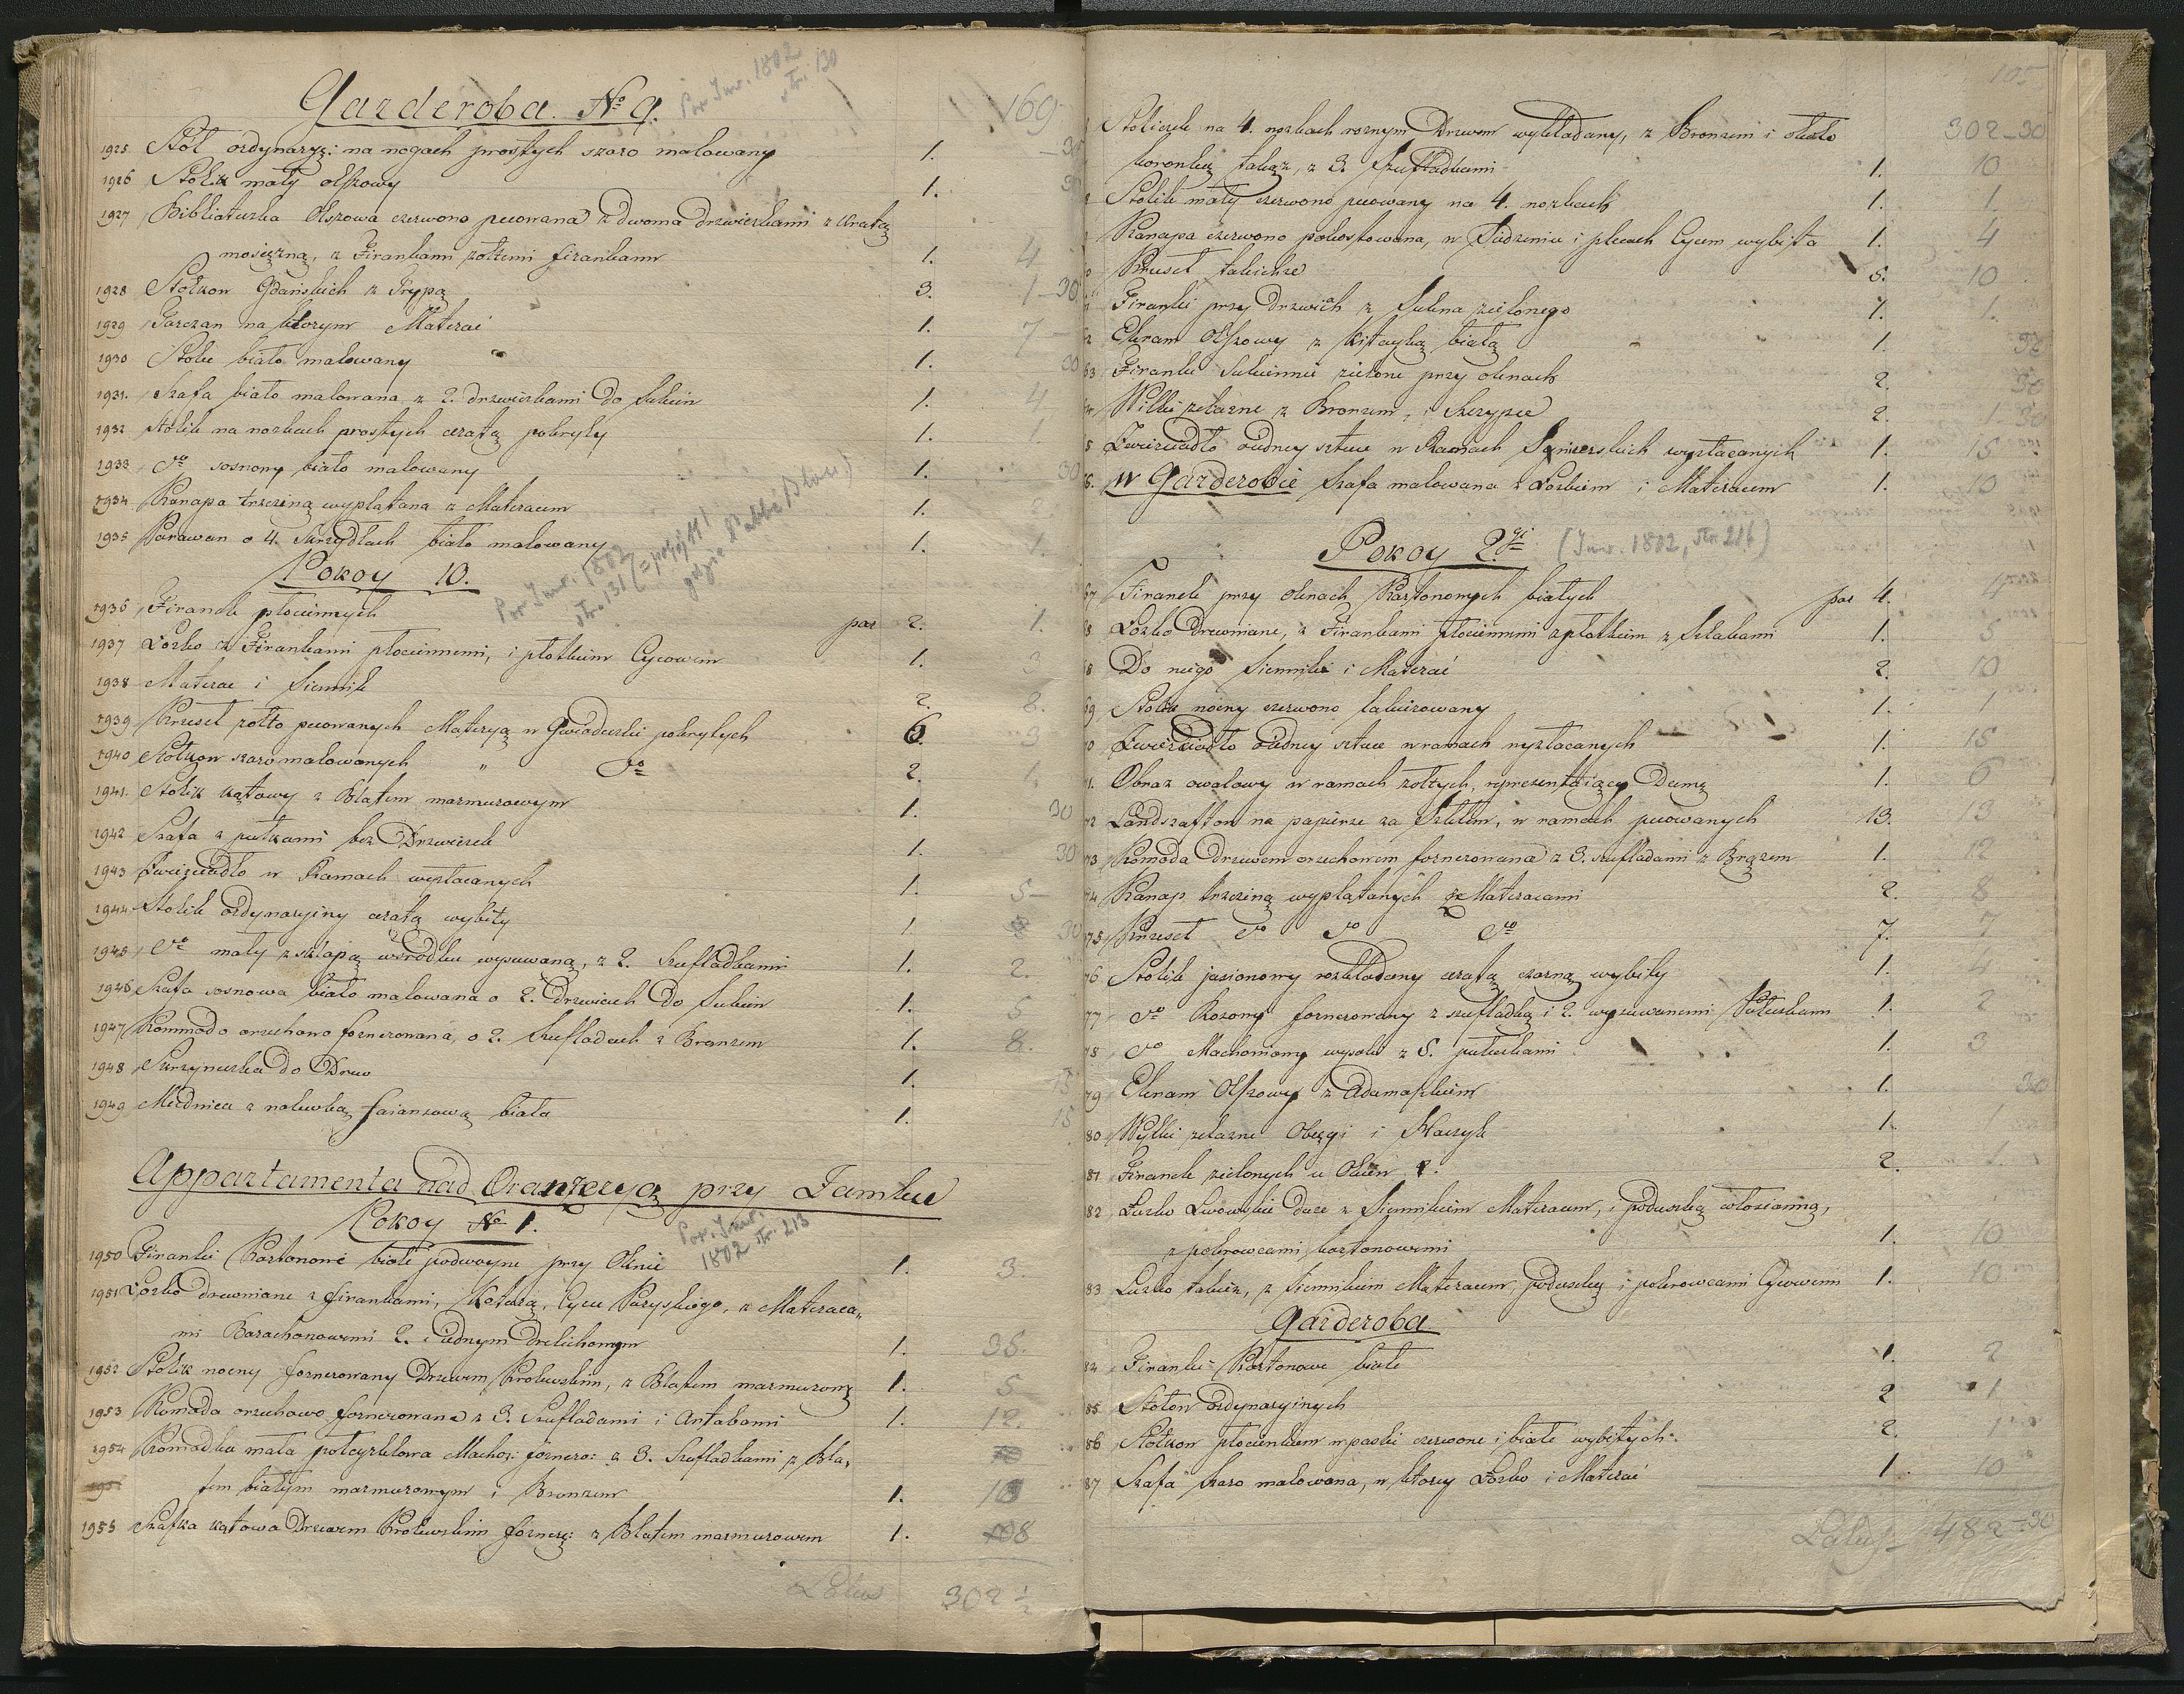 Garderoba. No 9.
Por Inw. 1802
str. 130
169
1925 Stół ordynaryi: na nogach prostych szaro malowany 1. –30
1926 Stolik mały olszowy 1. 30
1927 Bibliateczka Olszowa czerwono pucowana z dwoma drzwiczkami z kratą
mosiężną, z Firankami zołtemi firankami 1. 4
1928 Stołkow Gdańskich z Trypą 3. 1–30
1929 Tarczan na ktorym Materac 1. 7–
1930 Stolik biało malowany 1. 30
1931. Szafa biało malowana z 2. drzwiczkami do Sukien 1. 4
1932 Stolik na nozkach prostych ceratą pokryty 1. 1.
1933 do sosnowy biało malowany 1. 30
1934 Kanapa trzciną wyplatana z Materacem 1. 2.
1935 Parawan o 4. Skrzydłach biało malowany 1. 1.
Pokoy 10.
Por Inw. 1802
str. 131 (= pokój M!
gdzie
1936 Firanek płociennych par 2. 1.
1937 Łozko z Firankami płociennemi, i płotkiem Cycowem 1. 3
1938 Materac i Siennik 2. 2.
1939 Krzeseł zołto pucowanych Materyą w Gwiazdeczki pokrytych 6. 3
1940 Stołkow szaro malowanych " do 2. 1.
1941. Stolik kątowy z Blatem marmurowym 1. 30
1942 Szafa z pułkami bez Drzwiczek 1. 30
1943 Zwierciadło w Ramach wyzłacanych 1. 5–
1944 Stolik ordynaryiny ceratą wybity 1. 30
1945 do mały z sklapą w środku wysuwaną, z 2. Szufladkami 1. 2.
1946 Szafa sosnowa biało malowana o 2. Drzwiach do Sukien 1. 5
1947 Kommoda orzechowo fornerowana, o 2. Szufladach z Bronzem 1. 8.
1948 Skrzyneczka do Drew 1. 15
1949 Miednica z nalewką faiansową biała 1. 15
Appartamenta nad Oranzeryą przy Zamku
Pokoy No 1.
Por. Inw.
1802 str. 213
1950 Firanki Kartonowe białe podwoyne przy Oknie 1. 3.
1951 Łozko drewniane z firankami, Kołdrą, Cycu Paryskiego, z Materaca„
mi Barachanowemi 2. i iednym Drelichowym 1. 35.
1952 Stolik nocny fornerowany Drzewem Krolewskim, z Blatem marmurowym 1. 5
1953 Komoda orzechowo fornerowana z 3. Szufladami i Antabami 1. 12.
1954 Komodka mała połcyrklowa Machoń: fornero: z 3. Szufladkami z Bla„
tem białym marmurowym i Bronzem 1. 10
1955 Szafka kątowa Drzewem Krolewskim fornero: z Blatem marmurowem 1. 8
Latus 302 ½
105
Stoliczek na 4. nozkach roznym Drzewem wykładany, z Bronzem i około 302–30
koronką takąz, z 3 Szufladkami 1. 10
Stolik mały czerwono pucowany na 4. nozkach 1. 1.
Kanapa czerwono pokostowana, w Siedzeniu i plecach Cycem wybita 1. 4
Krzeseł takichze 5. 10
Firanki przy Drzwiach z Sukna zielonego 1. 1.
Ekran Olszowy z Kitayką białą 1.
63 Firanki Sukienne zielone przy oknach 2.
Wilki zelazne z Bronzem, i Szczypce 2. 1–30
5 Zwierciadło iedney sztuce w Ramach Snicerskich wyzłacanych 1. 15
6. w Garderobie Szafa malowana z Łozkiem i Materacem 1. 10
Pokoy 2gi (Inw. 1802, str. 216)
67 Firanek przy oknach Kartonowych białych par 4. 4
Łozko Drewniane, z Firankami płociennemi z płotkiem z Sztabami 1. 5
68 Do niego Siennik i Materac 2. 10
69 Stolik nocny czerwono lakierowany 1. 1
70 Zwierciadło iedney sztuce w ramach wyzłacanych 1. 15
71. Obraz owalowy w ramach zołtych, reprezentuiący Damę 1. 6
72 Landszaftow na papierze za Szkłem, w ramach pucowanych 13. 13
73 Komoda drzewem orzechowem fornerowana z 3. szufladami z Brązem 1. 12
74 Kanap trzciną wyplatanych z Materacami 2. 8
75 Krzeseł do do do 7. 7
76 Stolik jasionowy rozkładany ceratą czarną wybity 1. 4
77 do Rozowy fornerowany z szufladką i 2. wysuwanemi Pułeczkami 1. 2
78 do Machoniowy wysoki z 5. pułeczkami 1. 3
79 Ekran Olszowy z Adamaszkiem 1. 30
80 Wilki zelazne Obcęgi i Haczyk 1. 1
81 Firanek zielonych u Okien 2. 2. 1.
82 Łozko Lwowskie duze z Siennikiem Materacem, i poduszką włosianną,
z pokrowcami kartonowemi 1. 10
83 Łozko takież, z Siennikiem Materacem, poduszką i pokrowcami Cycowemi 1. 10
Garderoba
84 Firanki Kartonowe białe 1. 2
85 Stołow ordynaryinych 2 1
86 Stołkow płocienkiem w paski czerwone i białe wybitych 2. 1
87 Szafa Szaro malowana, w ktorey Łozko i Materac 1. 10
Latus 482–30